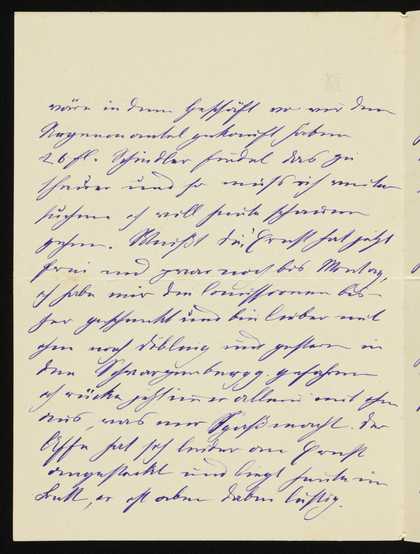 wäre in dem Geschäft wo wir den
Regenmantel gekauft haben
26 fl. Schindler findet das zu
theuer und so muss ich weiter
suchen ich will heute schauen
gehen. Weißt du! Ernst hat jetzt
frei und zwar noch bis Montag,
ich habe mir die bis-
her geschenkt und bin lieber mit
ihm nach Döbling und gestern in
den Schwarzenbergg. gefahren
ich rücke jetzt immer allein mit ihm
aus, was mir Spaß macht. Der
Affe hat sich leider an Ernst
angesteckt und liegt heute im
Bett, er ist aber dabei lustig.